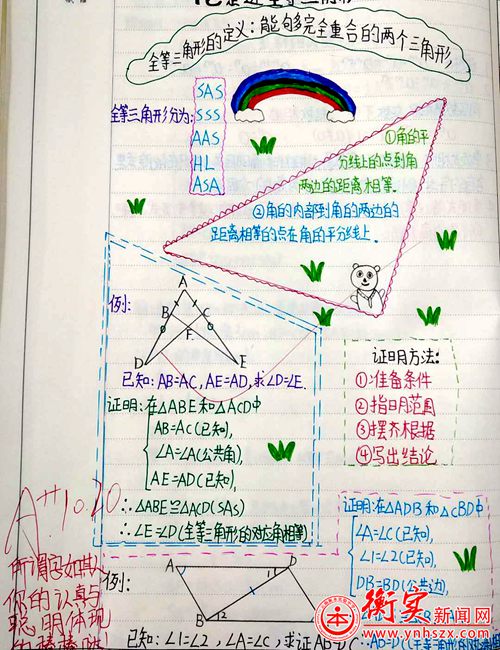 走近全等三角形
全等三角形的定义：能够完全重合的两个三角形，
全等三角形分为：
SAS
SSS
AAS
HL
ASA
①角的平
分线上的点到角
两边的距离相等．
②角的内部到角的两边的
距离相等的点在角的平分线上．
例：
A
B C
F
D E
已知：AB=AC，AE=AD，求∠D=∠E．
证明：在△ABE和△ACD中
AB=AC（已知），
∠A=∠A（公共角），
AE=AD（已知），
∴△ABE≌△ACD（SAS）
∴∠E=∠D（全等三角形的对应角相等）
证明方法：
①准备条件
②指明范围
③摆齐根据
④写出结论
A++ 10.20
你的认真与
聪明体现
例：
A D
1
B 2
已知：∠1=∠2，∠A=∠C，求证AB=DC
证明：在△ADB和△CBD中
∠A=∠C（已知），
∠1=∠2（已知），
DB=BD（公共边），
∴AB=DC
衡实新闻网
www.ynhszx.com